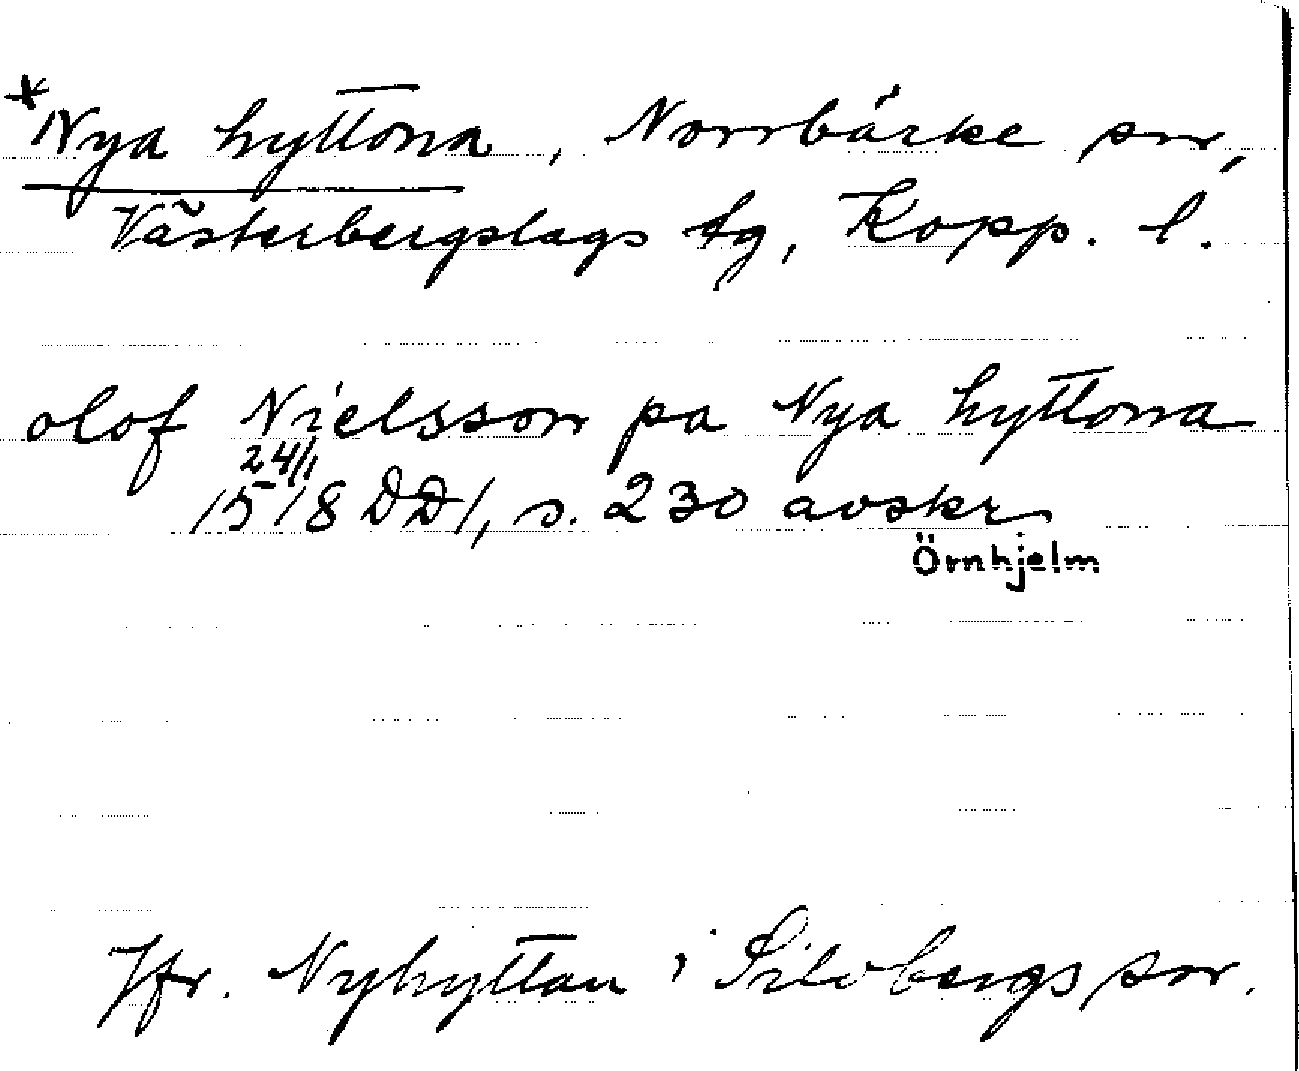 *Nya hyttona, Norrbärke sn,
Västerbergslags tg, Kopp. l.
olof Nielsson pa Nya hyttona
24/1
1518 DD1, s. 230 avskr
Örnhjelm
Jfr. Nyhyttan i Silvbergs sn.